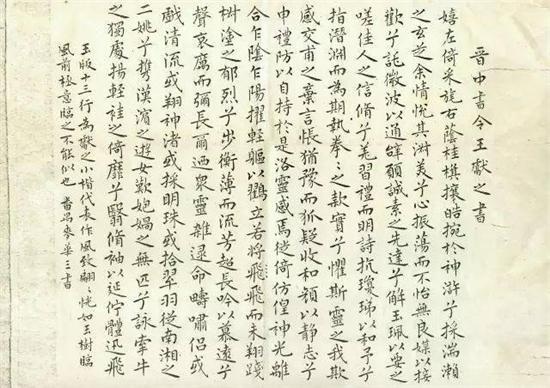 晋中書令王獻之書
嬉左倚采旄右蔭桂旗攘皓捥於神滸兮採湍瀨
之玄芝余情恱其淋美兮心振蕩而不怡無良媒以接
歡兮託微波以通辝願誠素之先達兮解玉珮以要之
嗟佳人之信脩兮羌習禮而明詩抗瓊珶以和予兮
指潛淵而為期執拳〻之款實兮懼斯靈之我欺
感交甫之棄言悵猶豫而狐疑收和顏以静志兮
申禮防以自持於是洛靈感焉徙倚仿偟神光離
合乍陰乍陽擢輕軀以鸖立若將飛飛而未翔踐
椒塗之郁烈兮步衡薄而流芳超長吟以慕遠兮
聲哀厲而彌長爾迺眾靈雜遝命疇嘯侶或
戲清流或翔神渚或採明珠或拾翠羽從南湘之
二姚兮攜漢濱之遊女歎匏媧之無匹兮詠牽牛
之獨處揚輕袿之倚靡兮翳脩袖以延佇體迅飛
玉版十三行為獻之小楷代表作風致翩〻恍如玉樹臨
風前極意臨之不能似也 三書